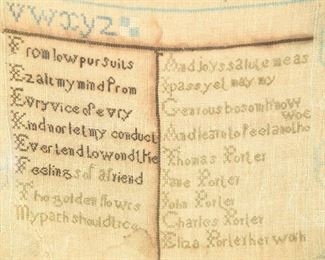 vwxyz
From low pursuits
Exalt my mind from
Evry vice of evry
Kind nor let my conduct
Ever tend to wond the
Feelings of a friend
Tho golden flowrs
My path should
And joys salute me as
I pass yet may my
Genrous bosom know
And learn to feel anothe
woe
Thomas Porter
Jane Porter
John Porter
Charles Porter
Eliza Porter her work